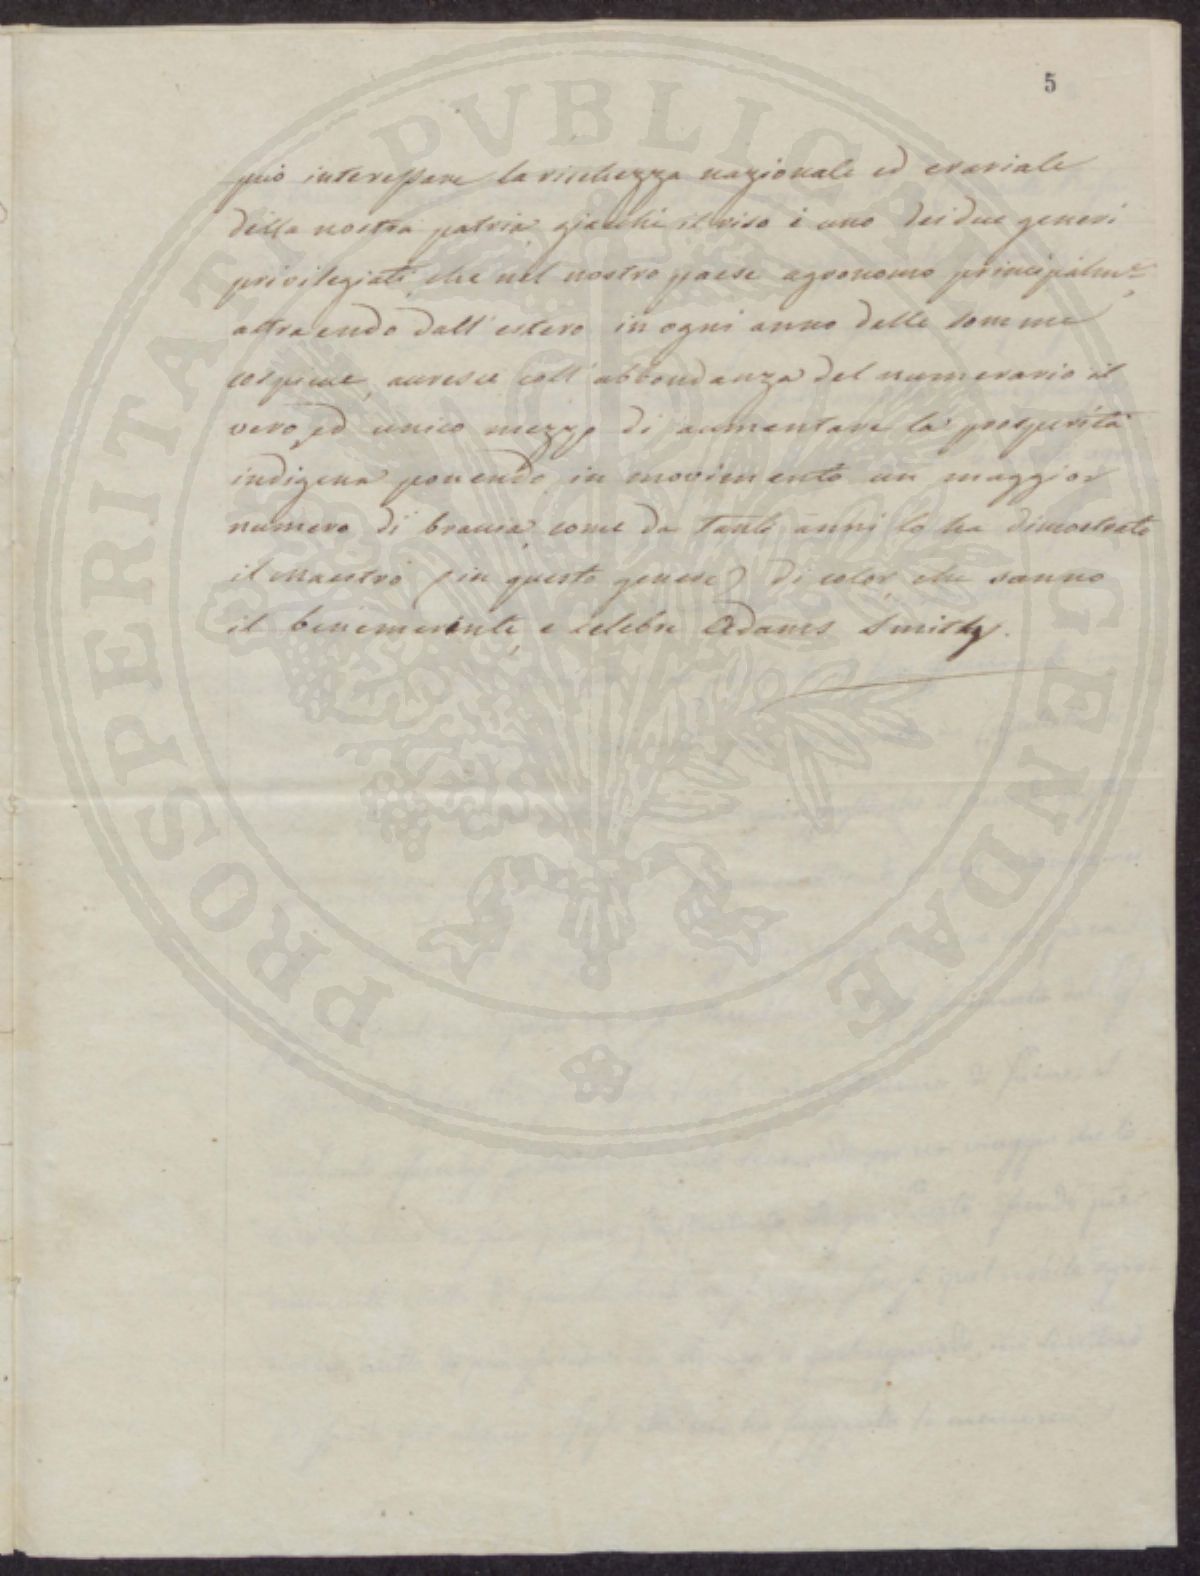 5
può interessare la ricchezza nazionale ed erariale
della nostra patria, giacchè il riso è uno dei due generi
privilegiati, che nel nostro paese agronomo principalm.e
attraendo dall'estero in ogni anno delle somme
cospicue, accresce coll'abbondanza del numerario il
vero, ed unico mezzo di aumentare la prosperità
indigena ponendo in movimento un maggior
numero di braccia, come da tanti anni lo ha dimostrato
il Maestro (in questo genere) di color, che sanno
il benemerente, e celebre Adams Smith.
PROSPERITATI PVBLICAE AVGENDAE